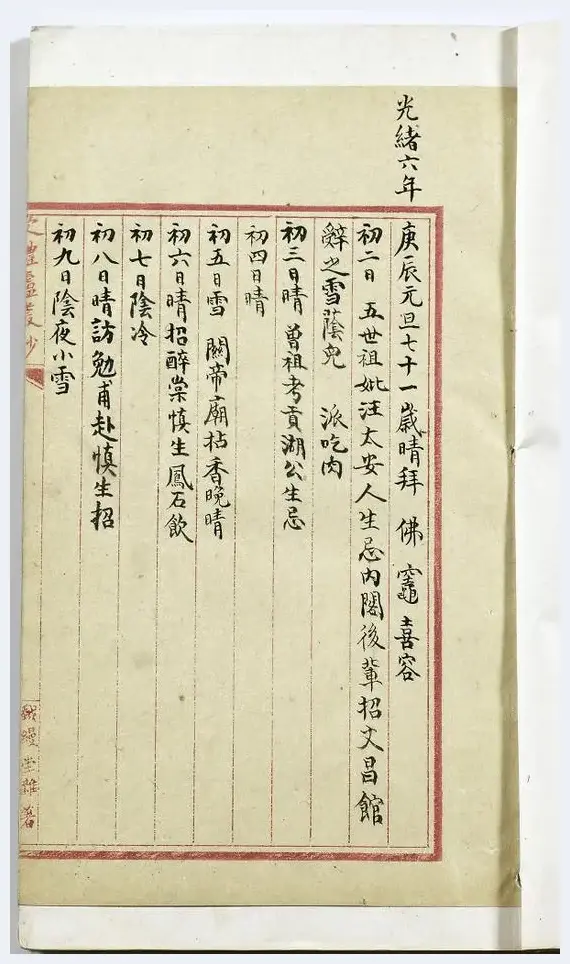 光緒六年
庚辰元旦七十一歲晴拜 佛 竈 喜容
初二日 五世祖妣汪太安人生忌內閣後輩招文昌館
辭之雪蔭兒 派吃肉
初三日晴 曾祖考貢湖公生忌
初四日晴
初五日雪 關帝廟拈香晚晴
初六日晴招醉棠慎生鳳石飲
初七日陰冷
初八日晴訪勉甫赴慎生招
初九日陰夜小雪